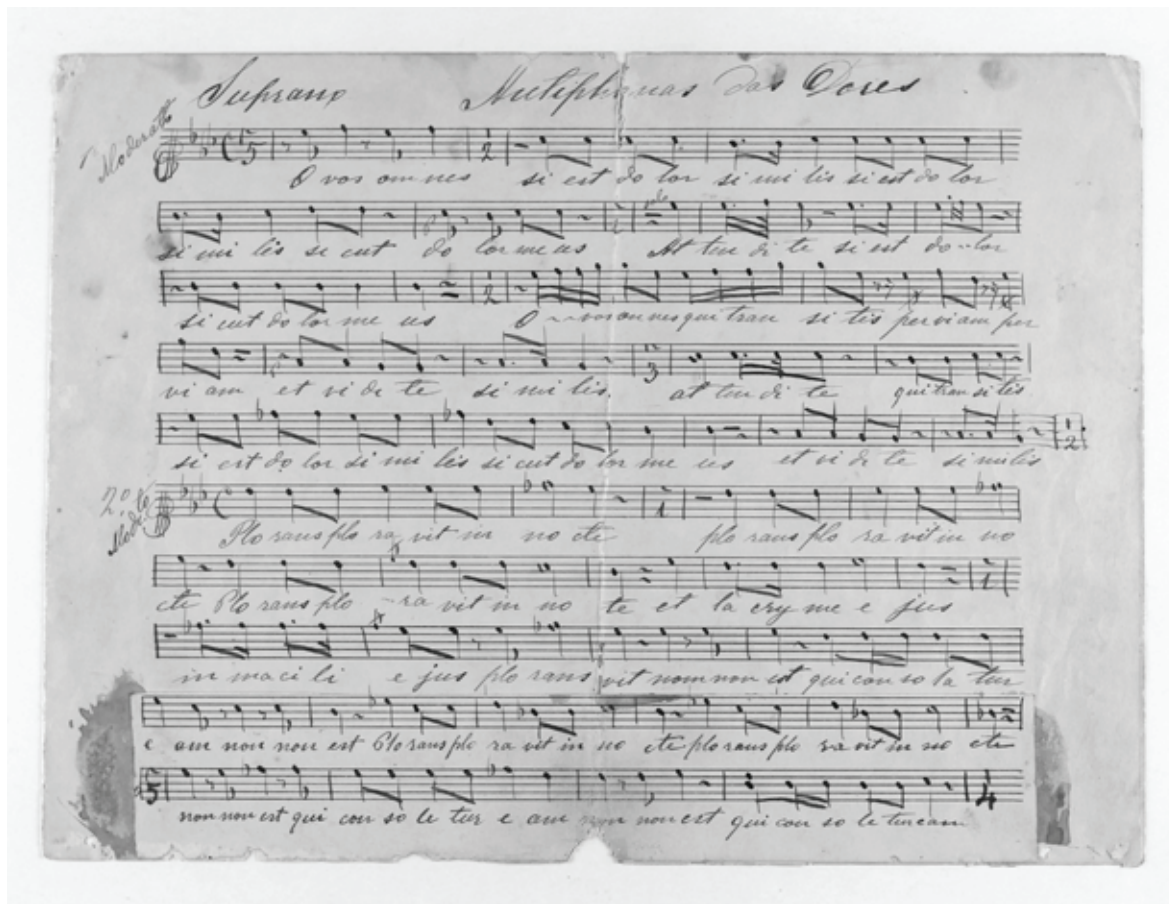 Suprano Antiphonas das Dores
Moderato
5
2
O vos om nes si est do lor si mi lis si est do lor
solo
si mi lis si cut do lor me us At ten di te si est do lor
2
si cut do lor me us O vos om nes qui tran si tis per viam per
3
vi am et vi de te si mi lis. at ten di te qui tran si tis
2
si est do lor si mi lis si cut do lor me us et vi de te si milis
2º
Modto
1
Plo rans plo ra vit in no cte plo rans plo ra vit in no
1
cte Plo rans plo ra vit in no te et la cry me e jus
in maci li e jus plo rans vit non non est qui con so la tur
e am non non est Plo rans plo ra vit in no cte plo rans plo ra vit in no cte
5
4
non non est qui con so le tur e am non non est qui con so le tur eam